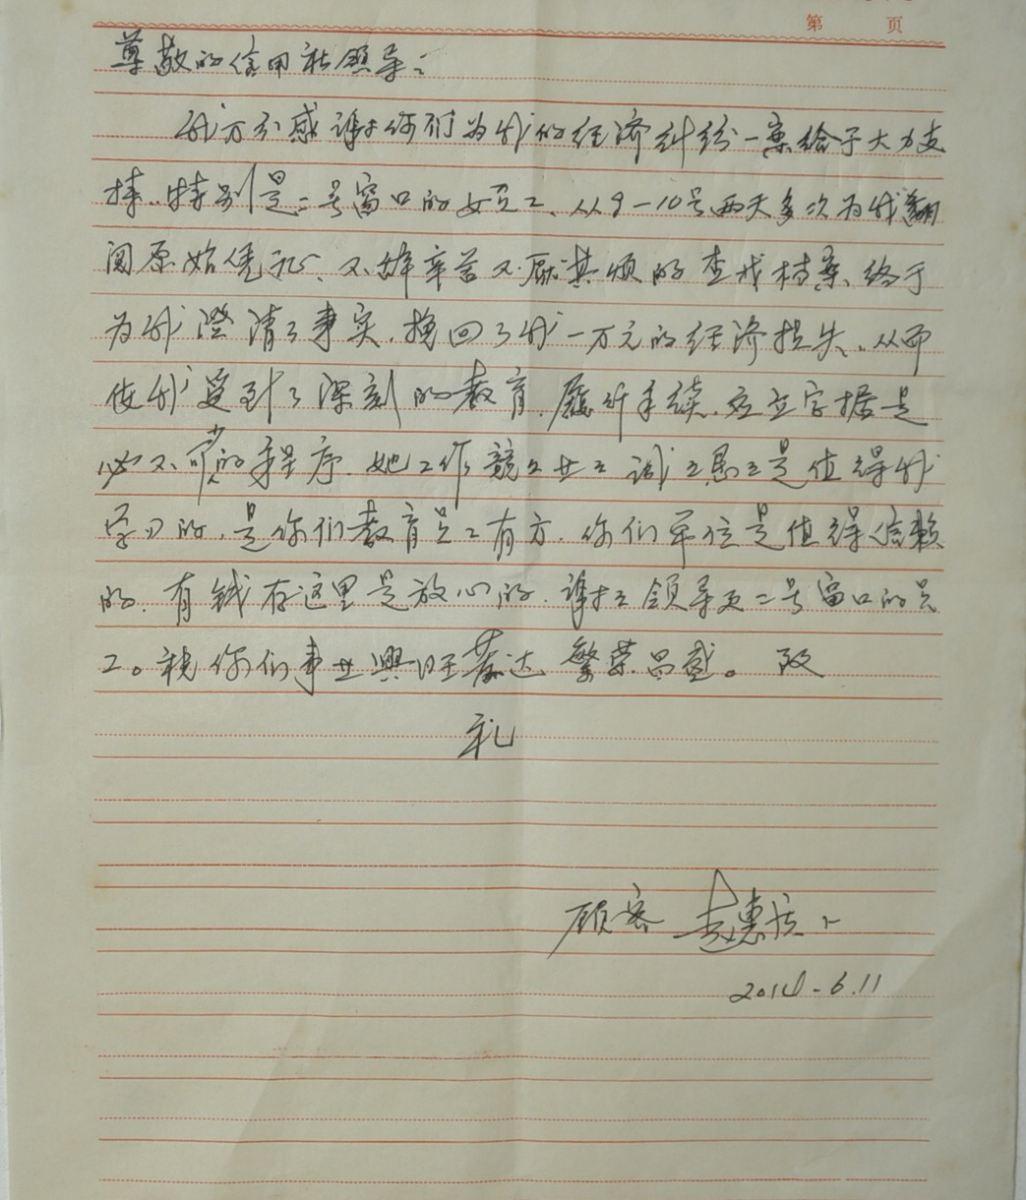 第 页
尊敬的信用社领导：
我万分感谢你们为我的经济纠纷一案给予大力支
持，特别是二号窗口的女员工、从9-10号两天多次为我翻
阅原始凭证、不辞辛苦不厌其烦的查找档案、终于
为我澄清了事实，挽回了我一万元的经济损失、从而
使我受到了深刻的教育，履行手续、应立字据是
必不可少的程序，她工作兢兢业业 诚诚恳恳是值得我
学习的，是你们教育员工有方，你们单位是值得信赖
的，有钱存这里是放心的，谢谢领导及二号窗口的员
工。祝你们事业興旺發达 繁荣昌盛。致
礼
顾客
2014-6.11